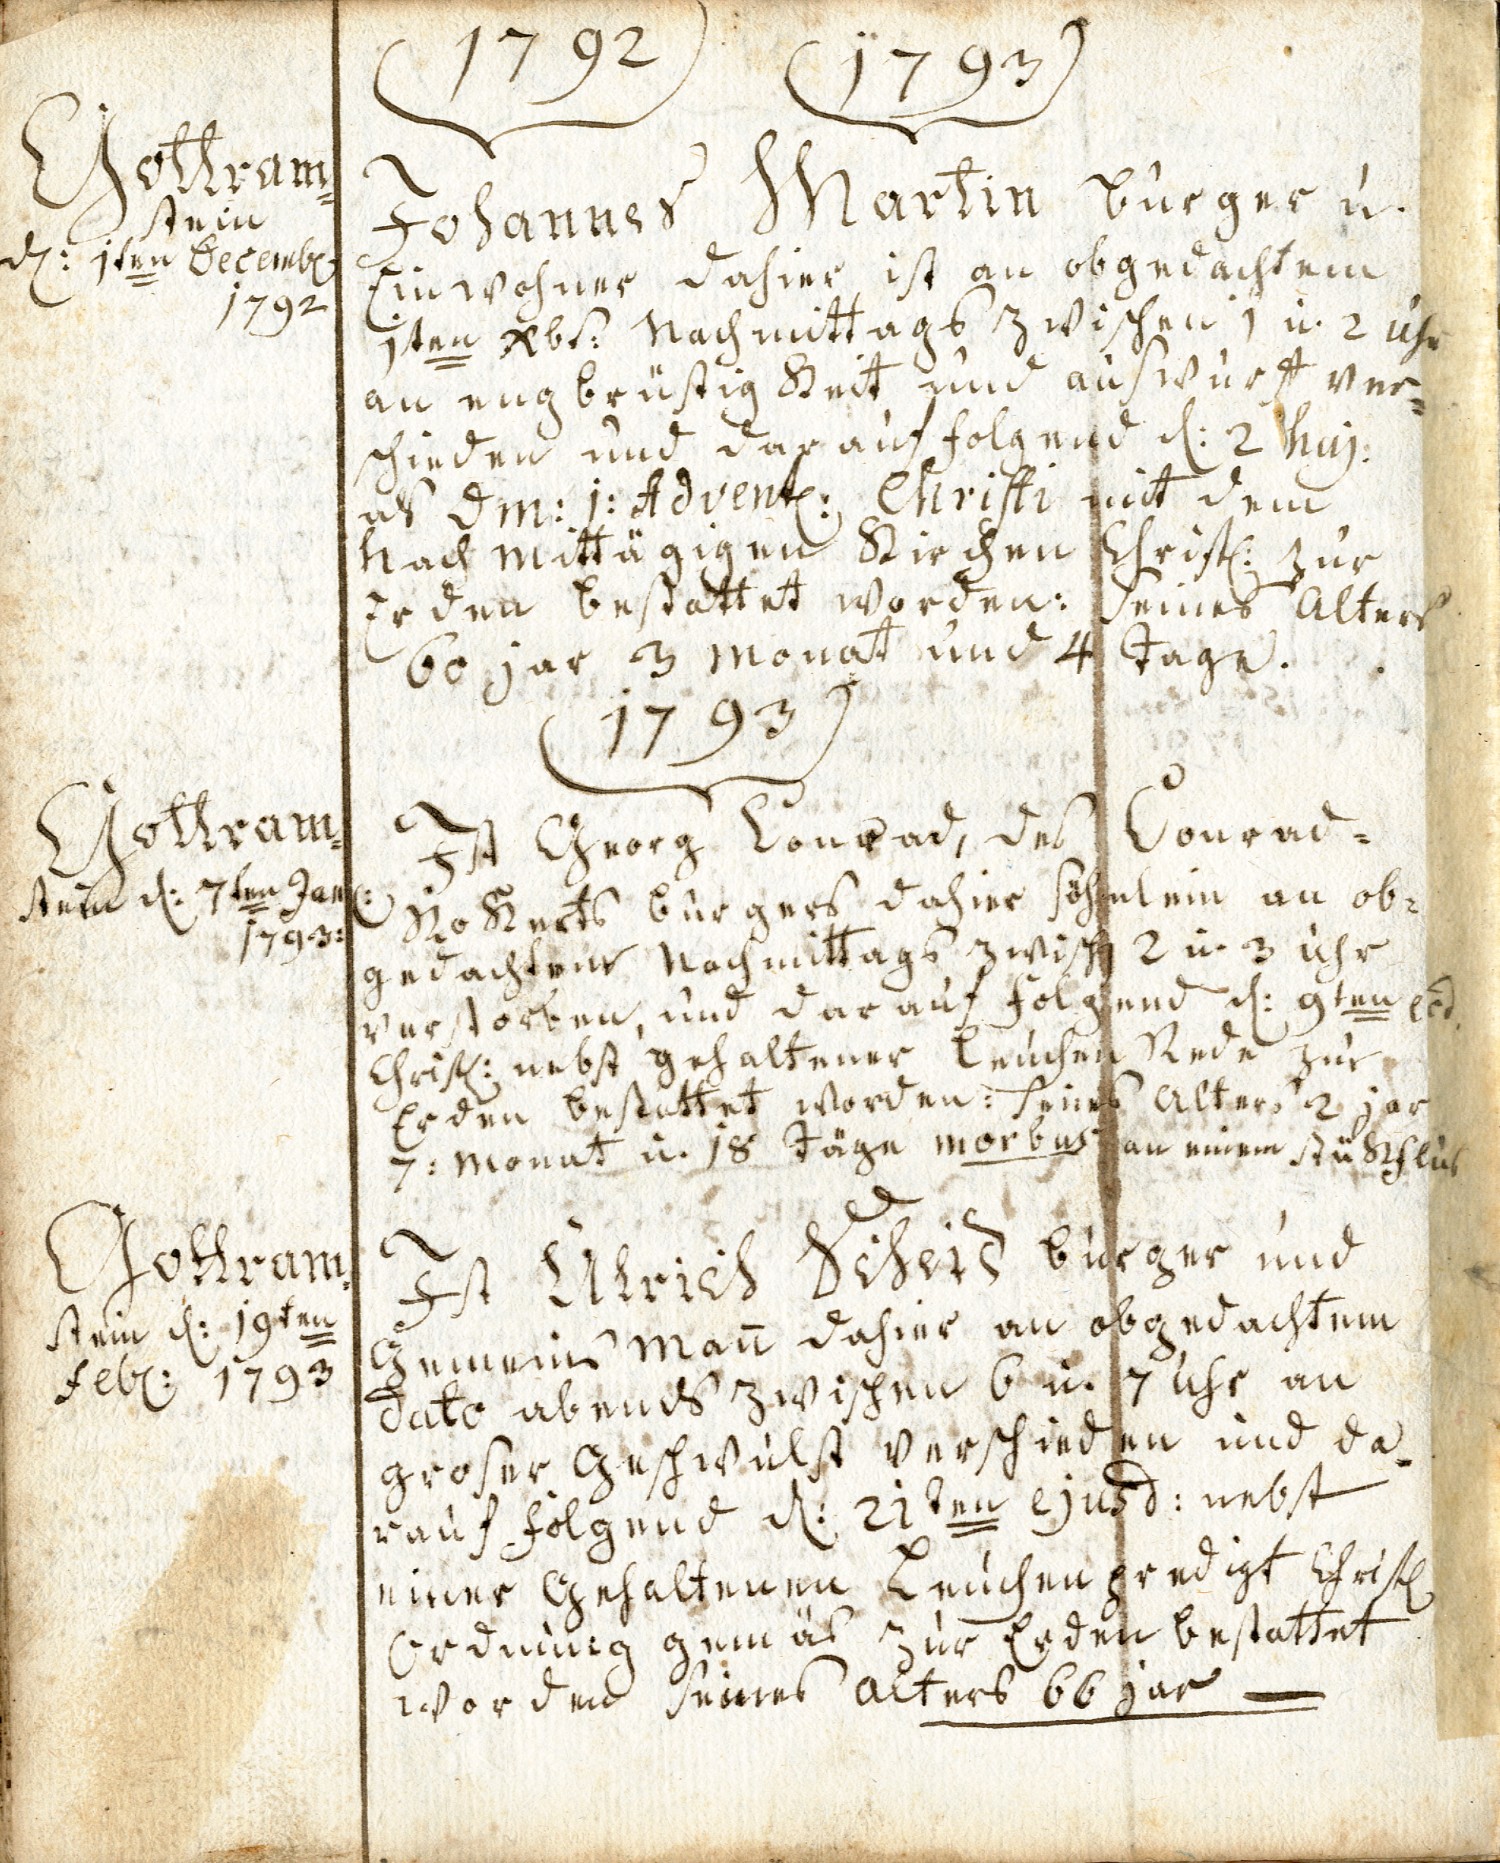 1792 1793
Gottram=
stein
d: 1ten Decembr
1792
Johannes Martin burger u.
Einwohner dahier ist an obgedachtem
1ten Xbr: Nachmittags zwischen 1 u. 2 Uhr
an engbrüstigkeit und auswurff ver=
schieden und darauf folgend d: 2 huj:
als Dm: 1: Advent: Christi mit dem
Nachmittägigen Kirchen Christl: zur
Erden bestattet worden: seines Alters
60 jar 3 Monat und 4 tage.
1793
Gottram=
stein d: 7ten Jan:
1793:
Ist Georg Conrad, des Conrad=
burgers dahier söhnlein an ob=
gedachtem Nachmittags zwisch 2 u. 3 Uhr
verstorben, und darauf folgend d: 9ten ejd.
Christl: nebst gehaltener Leuchen Rede zur
Erden bestattet worden: seines Alters 2 jar
7: Monat u. 18 täge morbus an einem stükfluß
Gottram=
stein d: 19ten
Febr: 1793
Ist Ulrich Scheid burger und
Gemeins Mañ dahier an obgedachtem
dato abends zwischen 6 u. 7 Uhr an
groser Geschwulst verschieden und da=
rauf folgend d: 21ten ejusd: nebst
einer Gehaltenen Leuchenpredigt Christl
Ordnung gemäs zur Erden bestattet
worden seines Alters 66 jar —